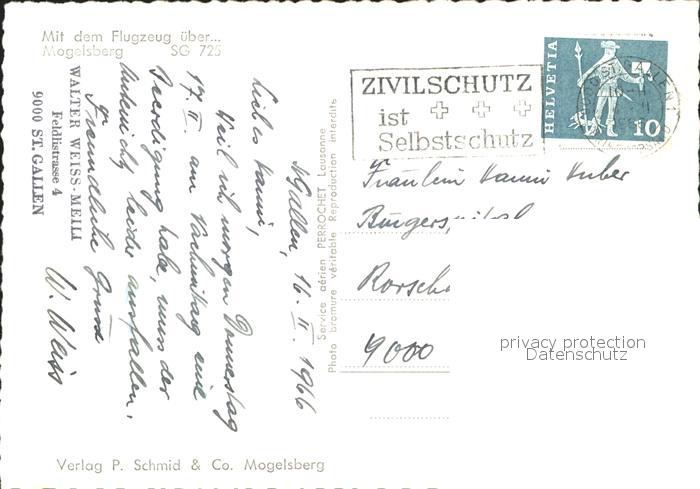 Mit dem Flugzeug über...
Mogelsberg SG 725
WALTER WEISS-MEILI
Feldlistrasse 4
9000 ST. GALLEN
St Gallen, 16. II. 1966
Liebes Hanni,
Weil ich morgen Donnerstag
17. II. am Vormittag eine
Beerdigung habe, muss der
Unterricht leider ausfallen.
Freundliche Grüsse
W. Weiss
Service aérien PERROCHET Lausanne
Photo bromure véritable Reproduction interdite
ZIVILSCHUTZ
ist
Selbstschutz
HELVETIA
10
Fräulein Hanni Huber
Bürgerspital
Rorsch
9000
privacy protection
Datenschutz
Verlag P. Schmid & Co. Mogelsberg